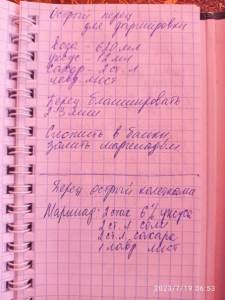 Острый перец
для фаршировки
Вода – 620 мл
уксус – 12 мл
сахар – 2 ст. л
лавр. лист
Перец бланшировать
2-3 мин
Сложить в банки,
залить маринадом
Перец острый колечками
Маринад: 2 стак 6% уксуса
2 ст. л соли
2 ст. л. сахара
1 лавр лист
2023/7/19 06:53